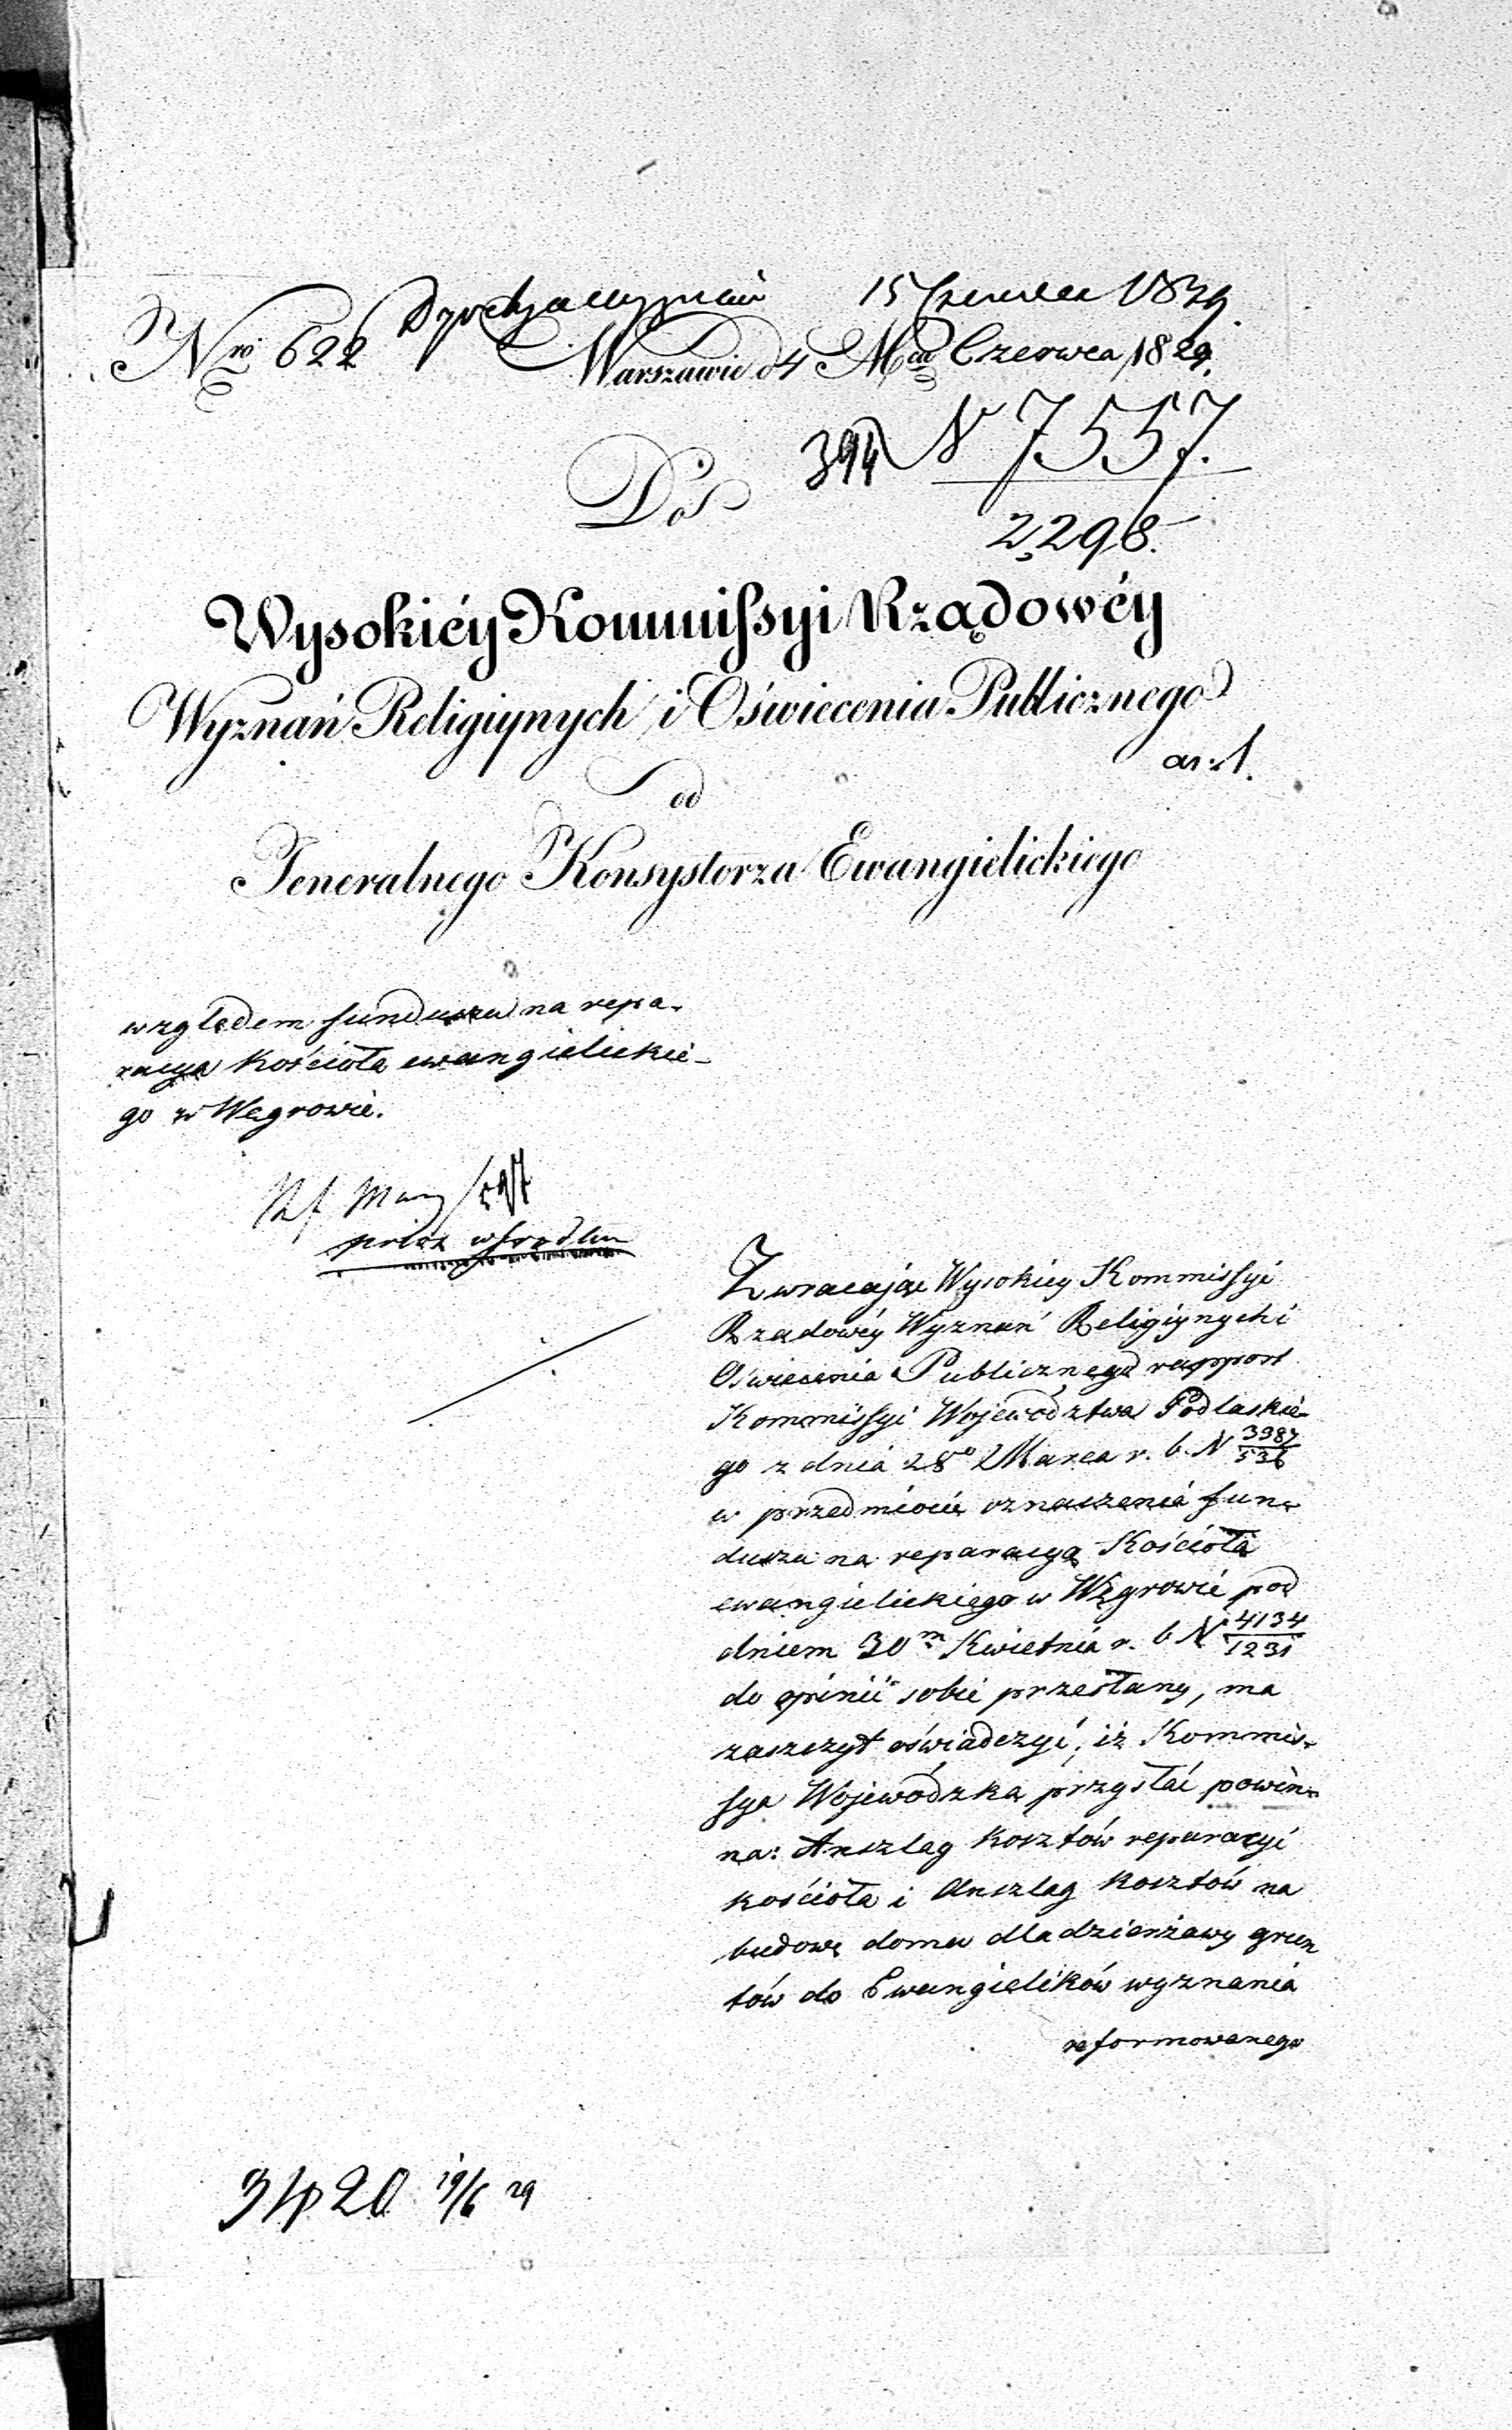 15 Czerwca 1829
Nro 622
w Warszawie d 4 Mca Czerwca 1829.
394 N 7557.
2,298.
Do
Wysokiéy Kommissyi Rządowéy
Wyznań Religiynych i Oświecenia Publicznego
an: 1.
od
Jeneralnego Konsystorza Ewangielickiego
względem funduszu na repa-
racyą Kościoła ewangielickie-
go w Węgrowie.
Zwracaiąc Wysokiey Kommissyi
Rządowéy Wyznań Religiynych i
Oświecenia Publicznego rapport
Kommissyi Województwa Podlaskie-
go z dnia 28o Marca r. b. N 3987/536
w przedmiocie oznaczenia fun-
duszu na reparacyą Kościoła
ewangielickiego w Węgrowie pod
dniem 30m Kwietnia r. b N 4134/1231
do opinii sobie przesłany, ma
zaszczyt oświadczyć, iż Kommis-
sya Wojewódzka przysłać powin-
na: Anszlag kosztów reparacyi
kościoła i Anszlag kosztów na
budowę domu dla dzierżawy grun
tów do Ewangielików wyznania
reformowanego
19/6 29